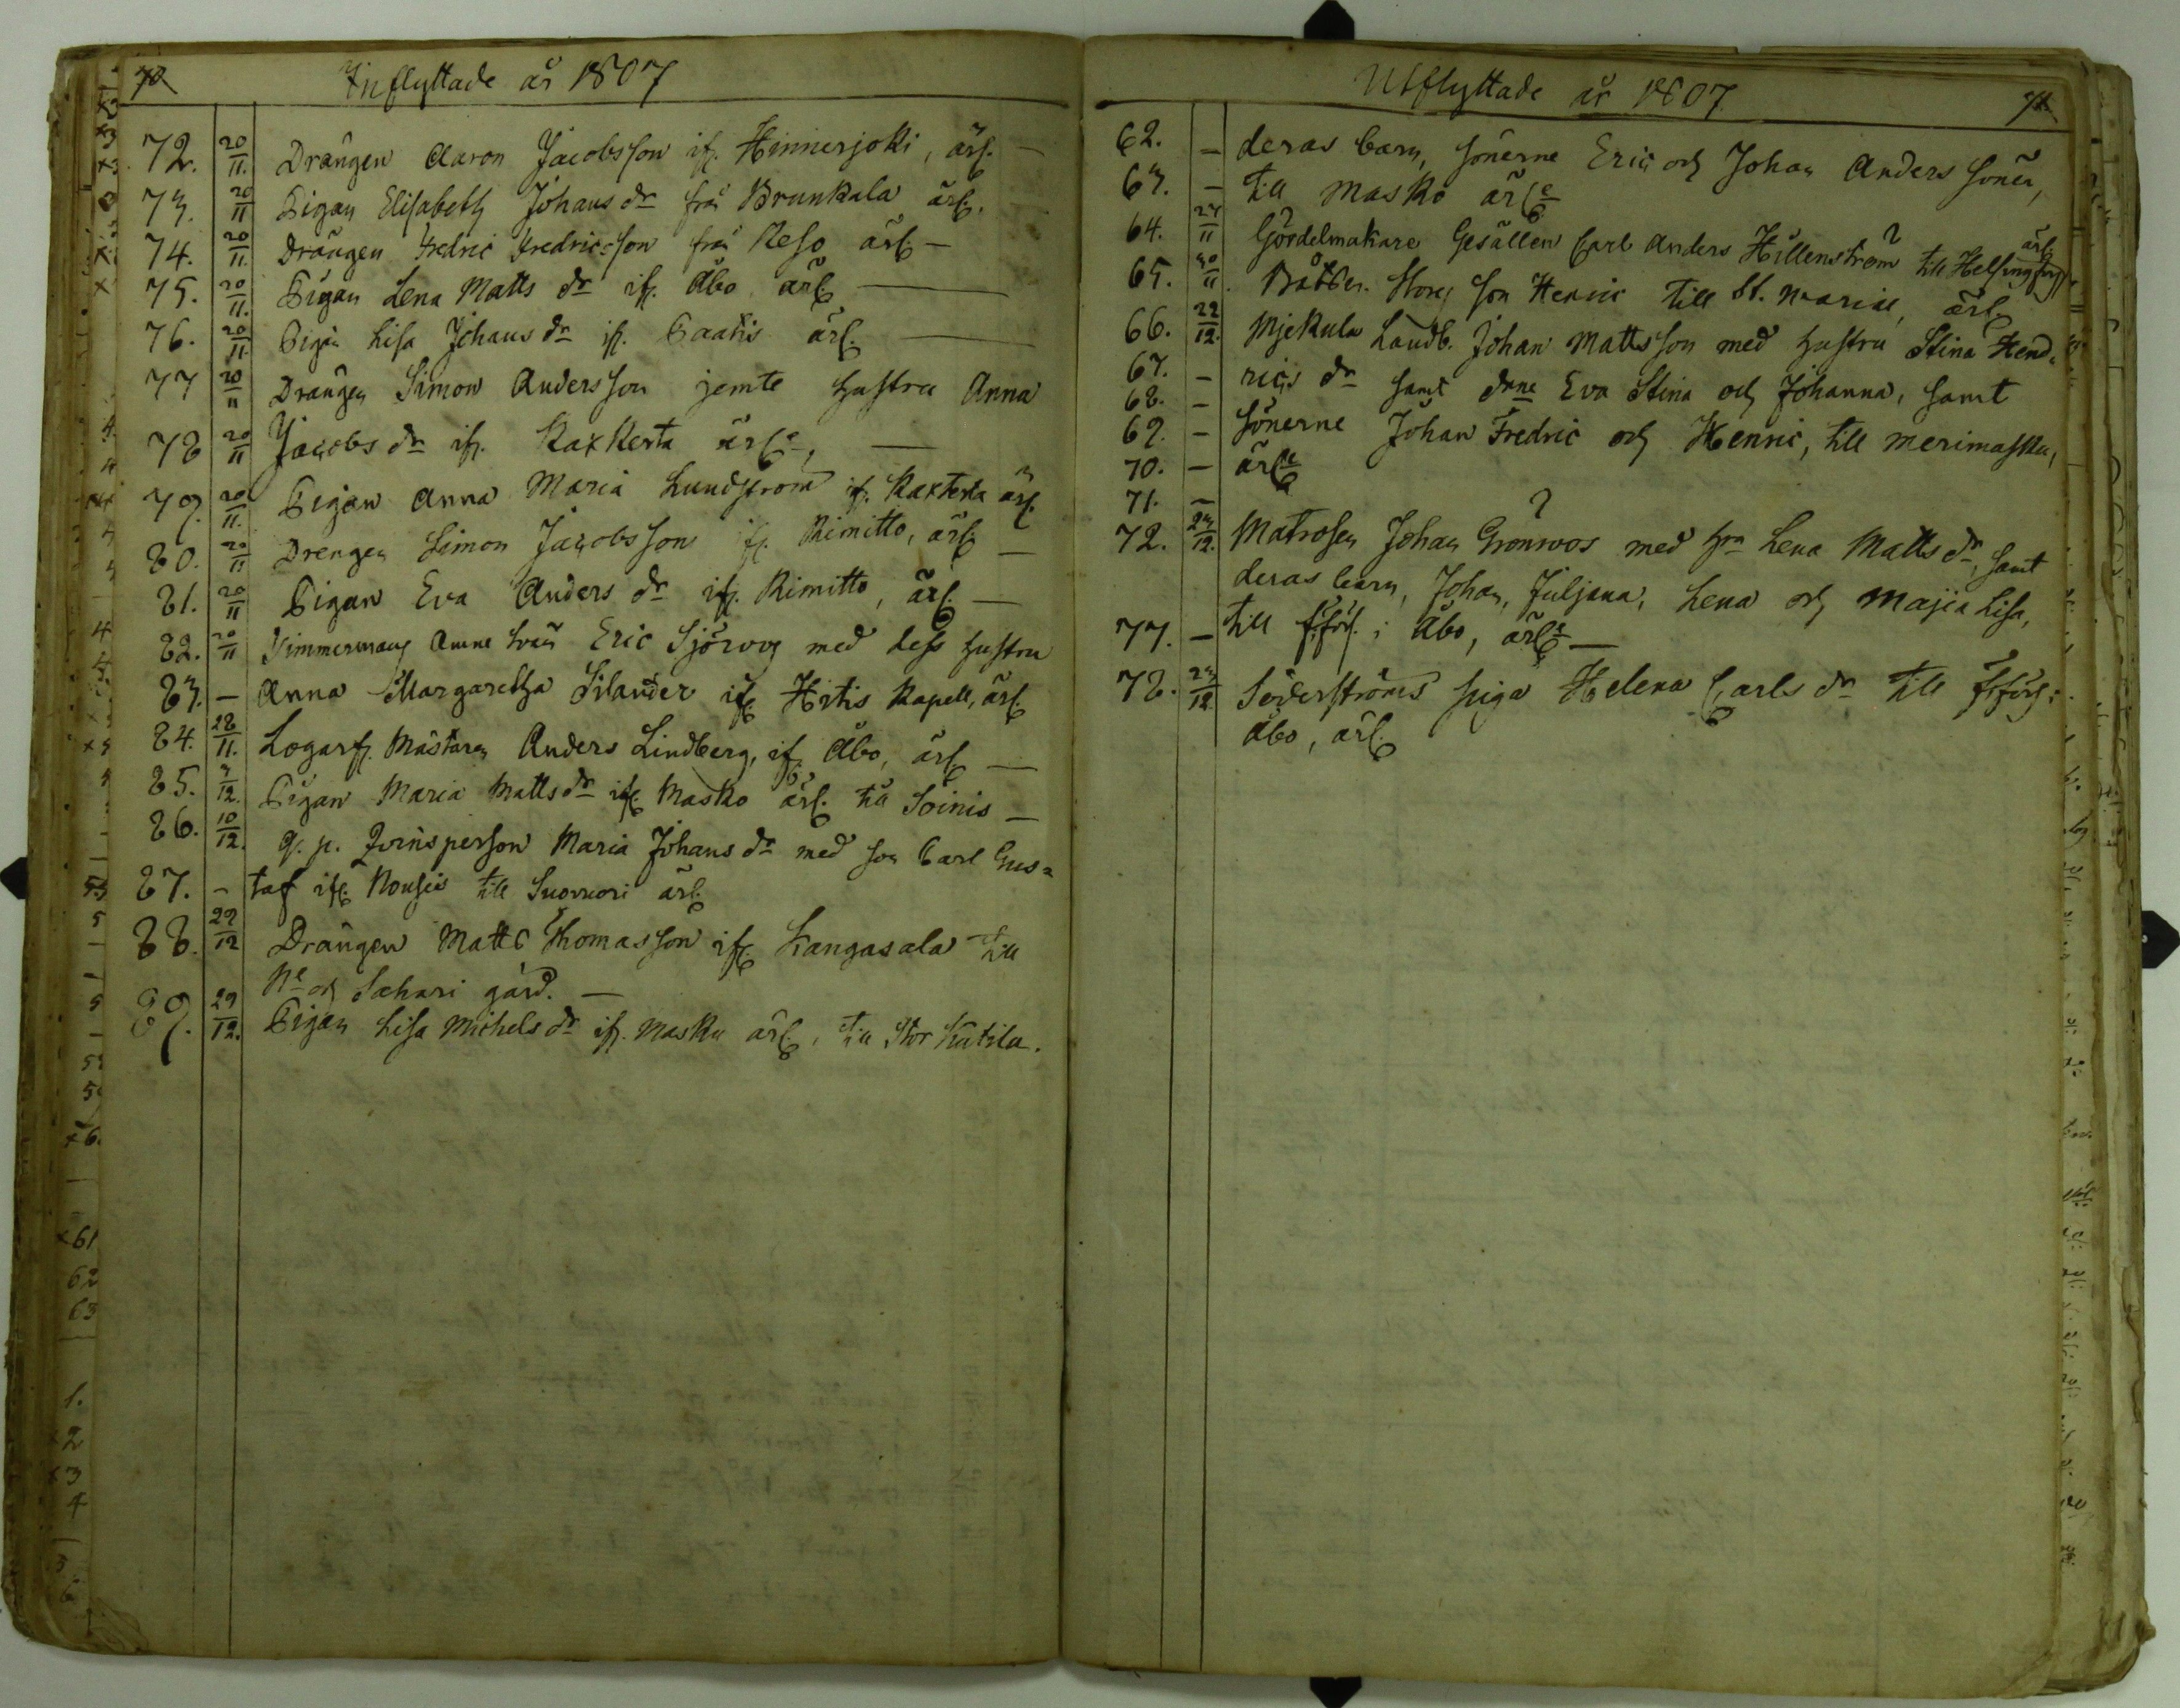 70
Inflyttade år 1807
72. 20/11. Drängen Aaron Jacobsson ifr. Hinnerjoki, ärl. —
73. 20/11 Pigan Elisabeth Johans dr från Brunkala ärl.
74. 20/11. Drängen Fredric Fredricsson från Reso ärl —
75. 20/11. Pigan Lena Matts dr ifr. Åbo ärl —
76. 20/11. Pigan Lisa Johans dr ifr. Paatis ärl. —
77 20/11 Drängen Simon Andersson jemte hustru Anna
78 20/11 Jacobs dr ifr. Kaxkerta ärle, —
79. 20/11. Pigan Anna Maria Lundström ifr. Kaxkerta ärl.
80. 20/11 Drengen Simon Jacobsson ifr. Rimitto, ärl —
81. 20/11 Pigan Eva Anders dr ifr. Rimitto, ärl —
82. 20/11 Timmerman Eric Sjöroos med dess hustru
83. — Anna Margaretha Silander ifr Hitis Kapell, ärl.
84. 28/11. Mästaren Anders Lindberg, ifr. Åbo, ärl —
85. 3/12. Pigan Maria Matts dr ifr Masko ärl. till Soinis —
86. 10/12. q. p. Qvinsperson Maria Johans dr med son Carl Gus=
87. - taf ifr Nousis till Suovuori ärl.
88. 29/12 Drängen Matts Thomasson ifr Kangasala till
N:e och Sakari gård. —
89. 29/12. Pigan Lisa Michels dr ifr. Masku ärl, till Stor Kätila.
Utflyttade år 1807
71
62. — deras barn, sönerne Eric och Johan Anders söner,
63. — till Masko ärle
64. 24/11 Gördelmakare Gesällen Carl Anders Hillenström till Helsingfors ärl
65. 30/11. son Henric till St. Mariæ, ärl
66. 22/12. Mjekula Landb. Johan Mattsson med hustru Stina Hend=
67. — rics dr samt drne Eva Stina och Johanna, samt
68. —
69. — sönerne Johan Fredric och Henric, till Merimasku,
70. — ärle
71. —
72. 23/12. Matrosen Johan Grönroos med hru Lena Matts dr, samt
deras barn, Johan, Juljana, Lena och Majia Lisa,
77. — till f. förs. i Åbo, ärle —
78. 23/12 Söderströms piga Helena Carls dr till f. förs:
Åbo, ärl.